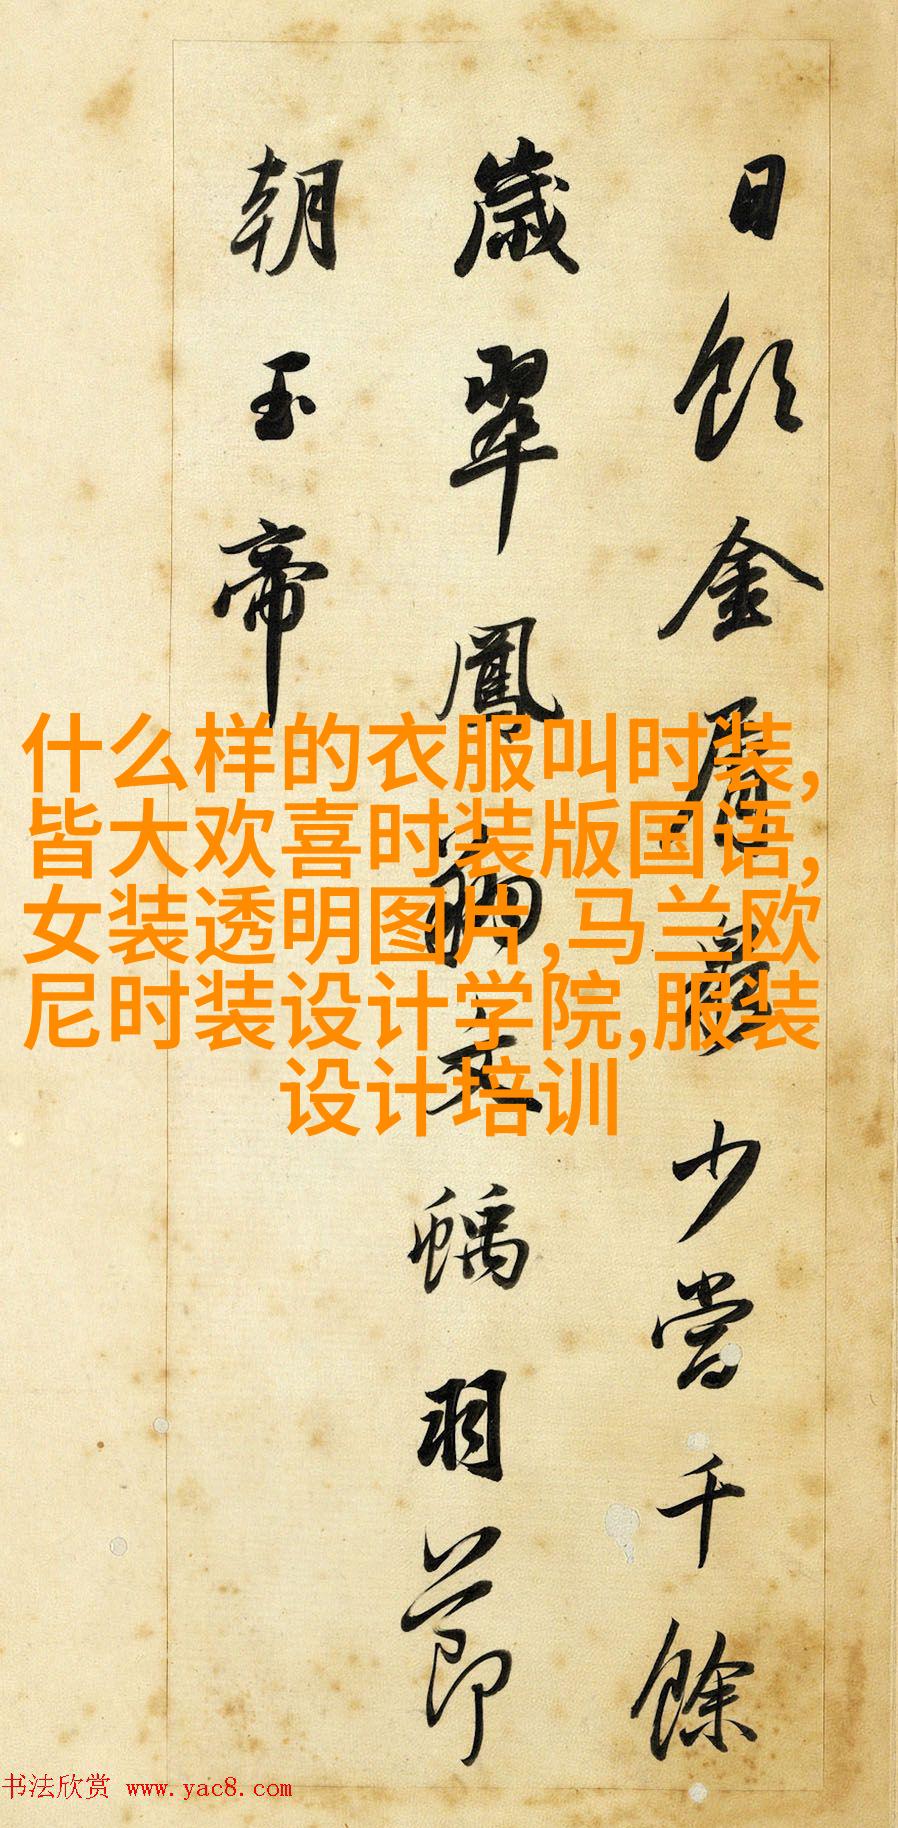 日飲金屑泉少當千餘
歲翠鳳文螭羽節
朝玉帝
什么样的衣服叫时装,
皆大欢喜时装版国语,
女装透明图片,马兰欧
尼时装设计学院,服装
设计培训
书法欣赏 www.yac8.com